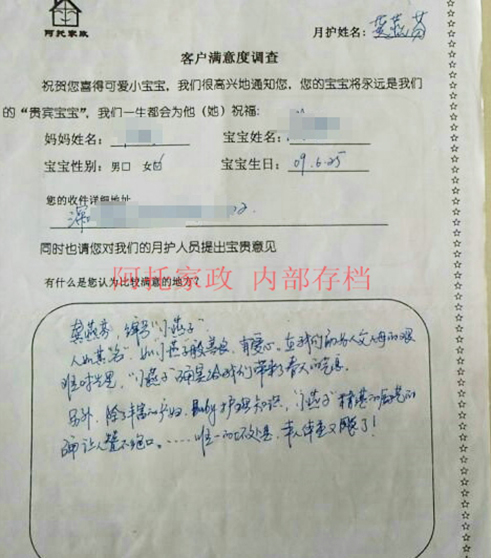 阿托家政
月护姓名：龚燕芬
客户满意度调查
祝贺您喜得可爱小宝宝，我们很高兴地通知您，您的宝宝将永远是我们
的“贵宾宝宝”，我们一生都会为他（她）祝福：
妈妈姓名：
宝宝姓名：
宝宝性别：男□ 女☑
宝宝生日：09.6.25
您的收件详细地址
深
同时也请您对我们的月护人员提出宝贵意见
有什么是您认为比较满意的地方？
阿托家政 内部存档
龚燕芬，编号“小燕子”
人如其名，如小燕子般善良、有爱心，在我们初为人父母的艰
难时光里，“小燕子”确是给我们带来了春天的气息
另外，除了丰富的产妇、Baby护理知识，“小燕子”精湛的厨艺的
确让人赞不绝口。……唯一的不好处是，本人体重又飙了！